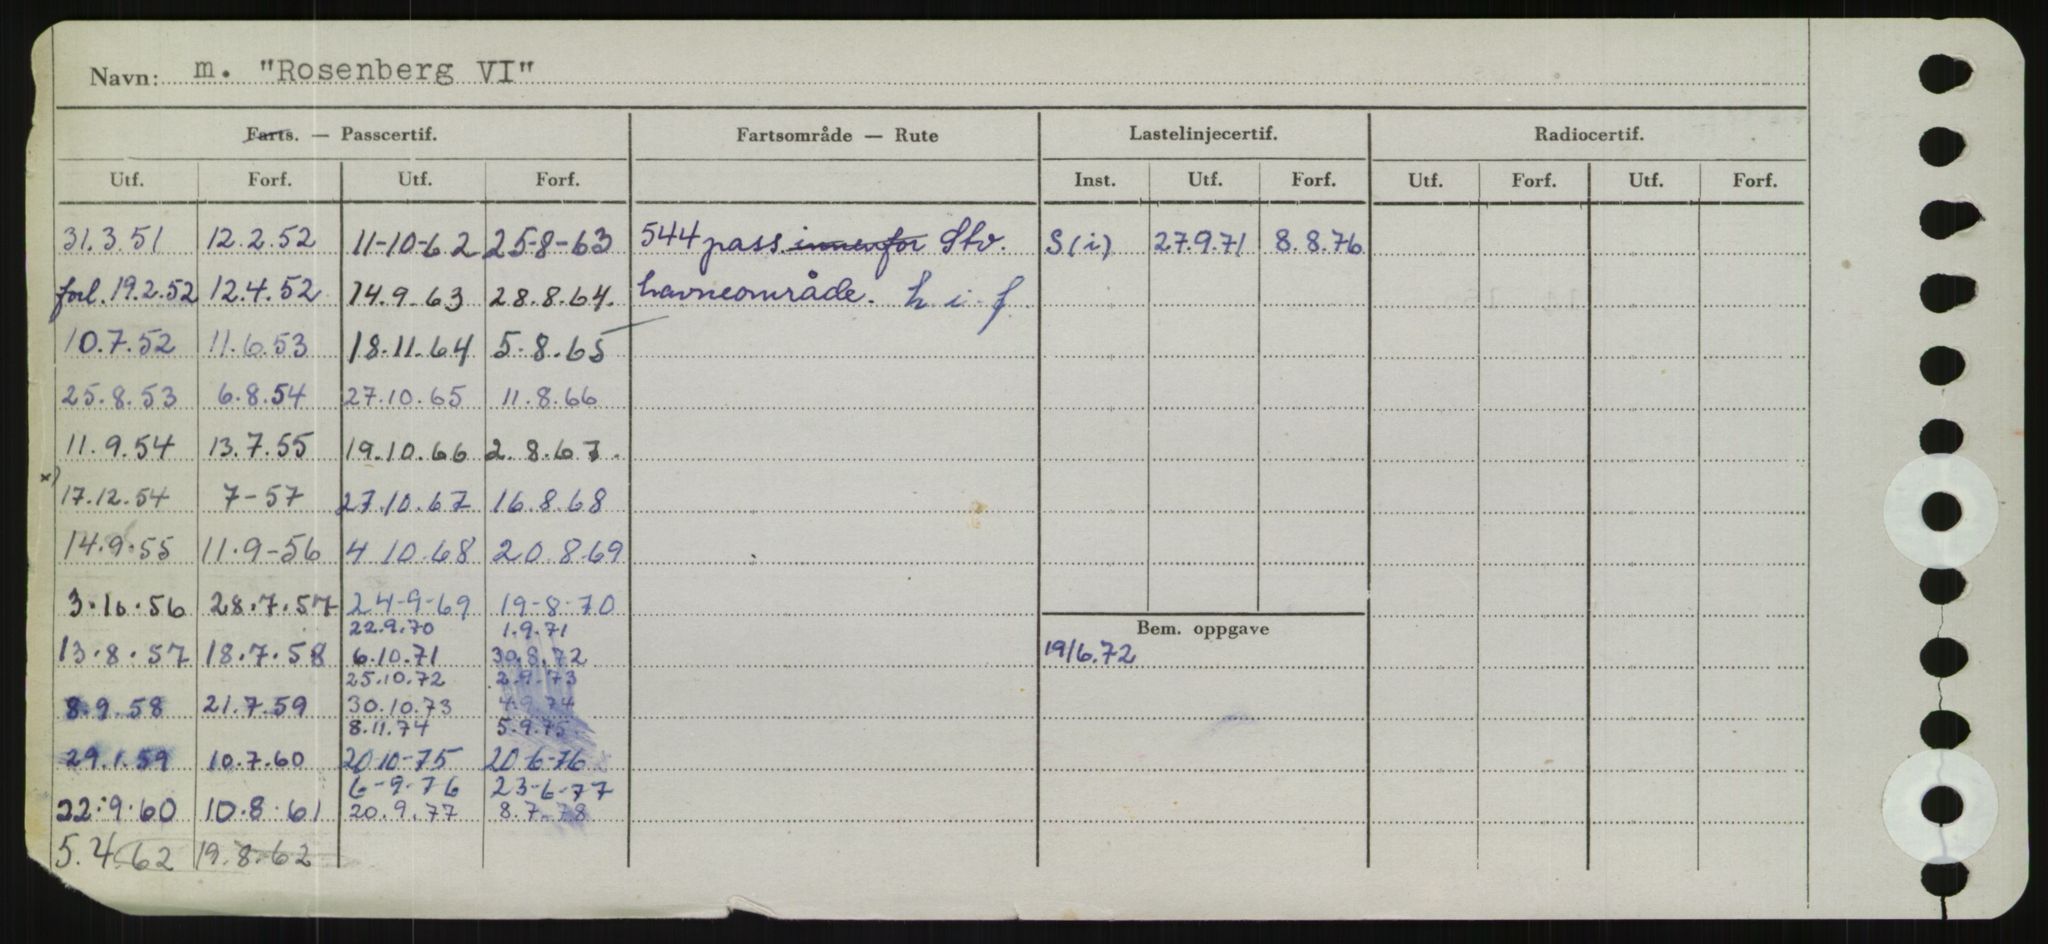 Navn: m. "Rosenberg VI"
Farts. — Passcertif. Fartsområde — Rute Lastelinjecertif. Radiocertif.
Utf. Forf. Utf. Forf. Inst. Utf. Forf. Utf. Forf. Utf. Forf.
31.3.51 12.2.52 11-10-62 25-8-63 544 pass. innenfor Stv. S(i) 27.9.71 8.8.76
forl. 19.2.52 12.4.52 14.9.63 28.8.64. havneområde. h. i. f.
10.7.52 11.6.53 18.11.64 5.8.65
25.8.53 6.8.54 27.10.65 11.8.66
11.9.54 13.7.55 19.10.66 2.8.67.
x) 17.12.54 7-57 27.10.67 16.8.68
14.9.55 11.9-56 4.10.68 20.8.69
3.10.56 28.7.57 24-9-69 19-8-70
22.9.70 1.9.71 Bem. oppgave
13.8.57 18.7.58 6.10.71 30.8.72 19/6.72
25.10.72 2.9.73
8.9.58 21.7.59 30.10.73 4.9.74
8.11.74 5.9.75
29.1.59 10.7.60 20.10-75 20-6-76
6-9.76 23-6-77
22.9.60 10.8.61 20.9.77 8.7.78
5.4.62 19.8.62